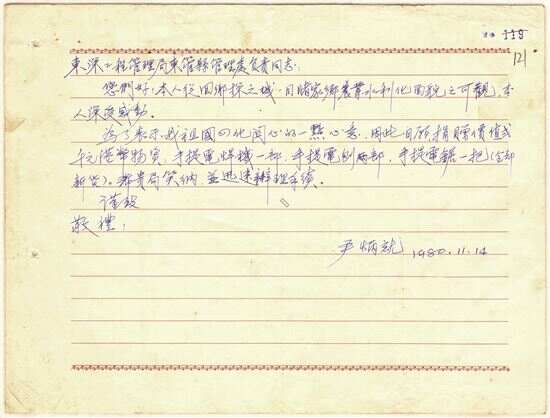 118
121
東深工程管理局東莞縣管理處負責同志:
您們好,本人從回鄉探之城,目睹家鄉農業水利化面貌之可觀,本
人深度感動。
為了表示我祖國四化関心的一點心意,因此自願捐贈價值
千元港幣物資,手提電焊機一部,手提電刨兩部,手提電鋸一把(全部
新貨)。貴局笑納,並迅速辦理手續。
謹致
敬禮!
尹炳就 1980.11.14